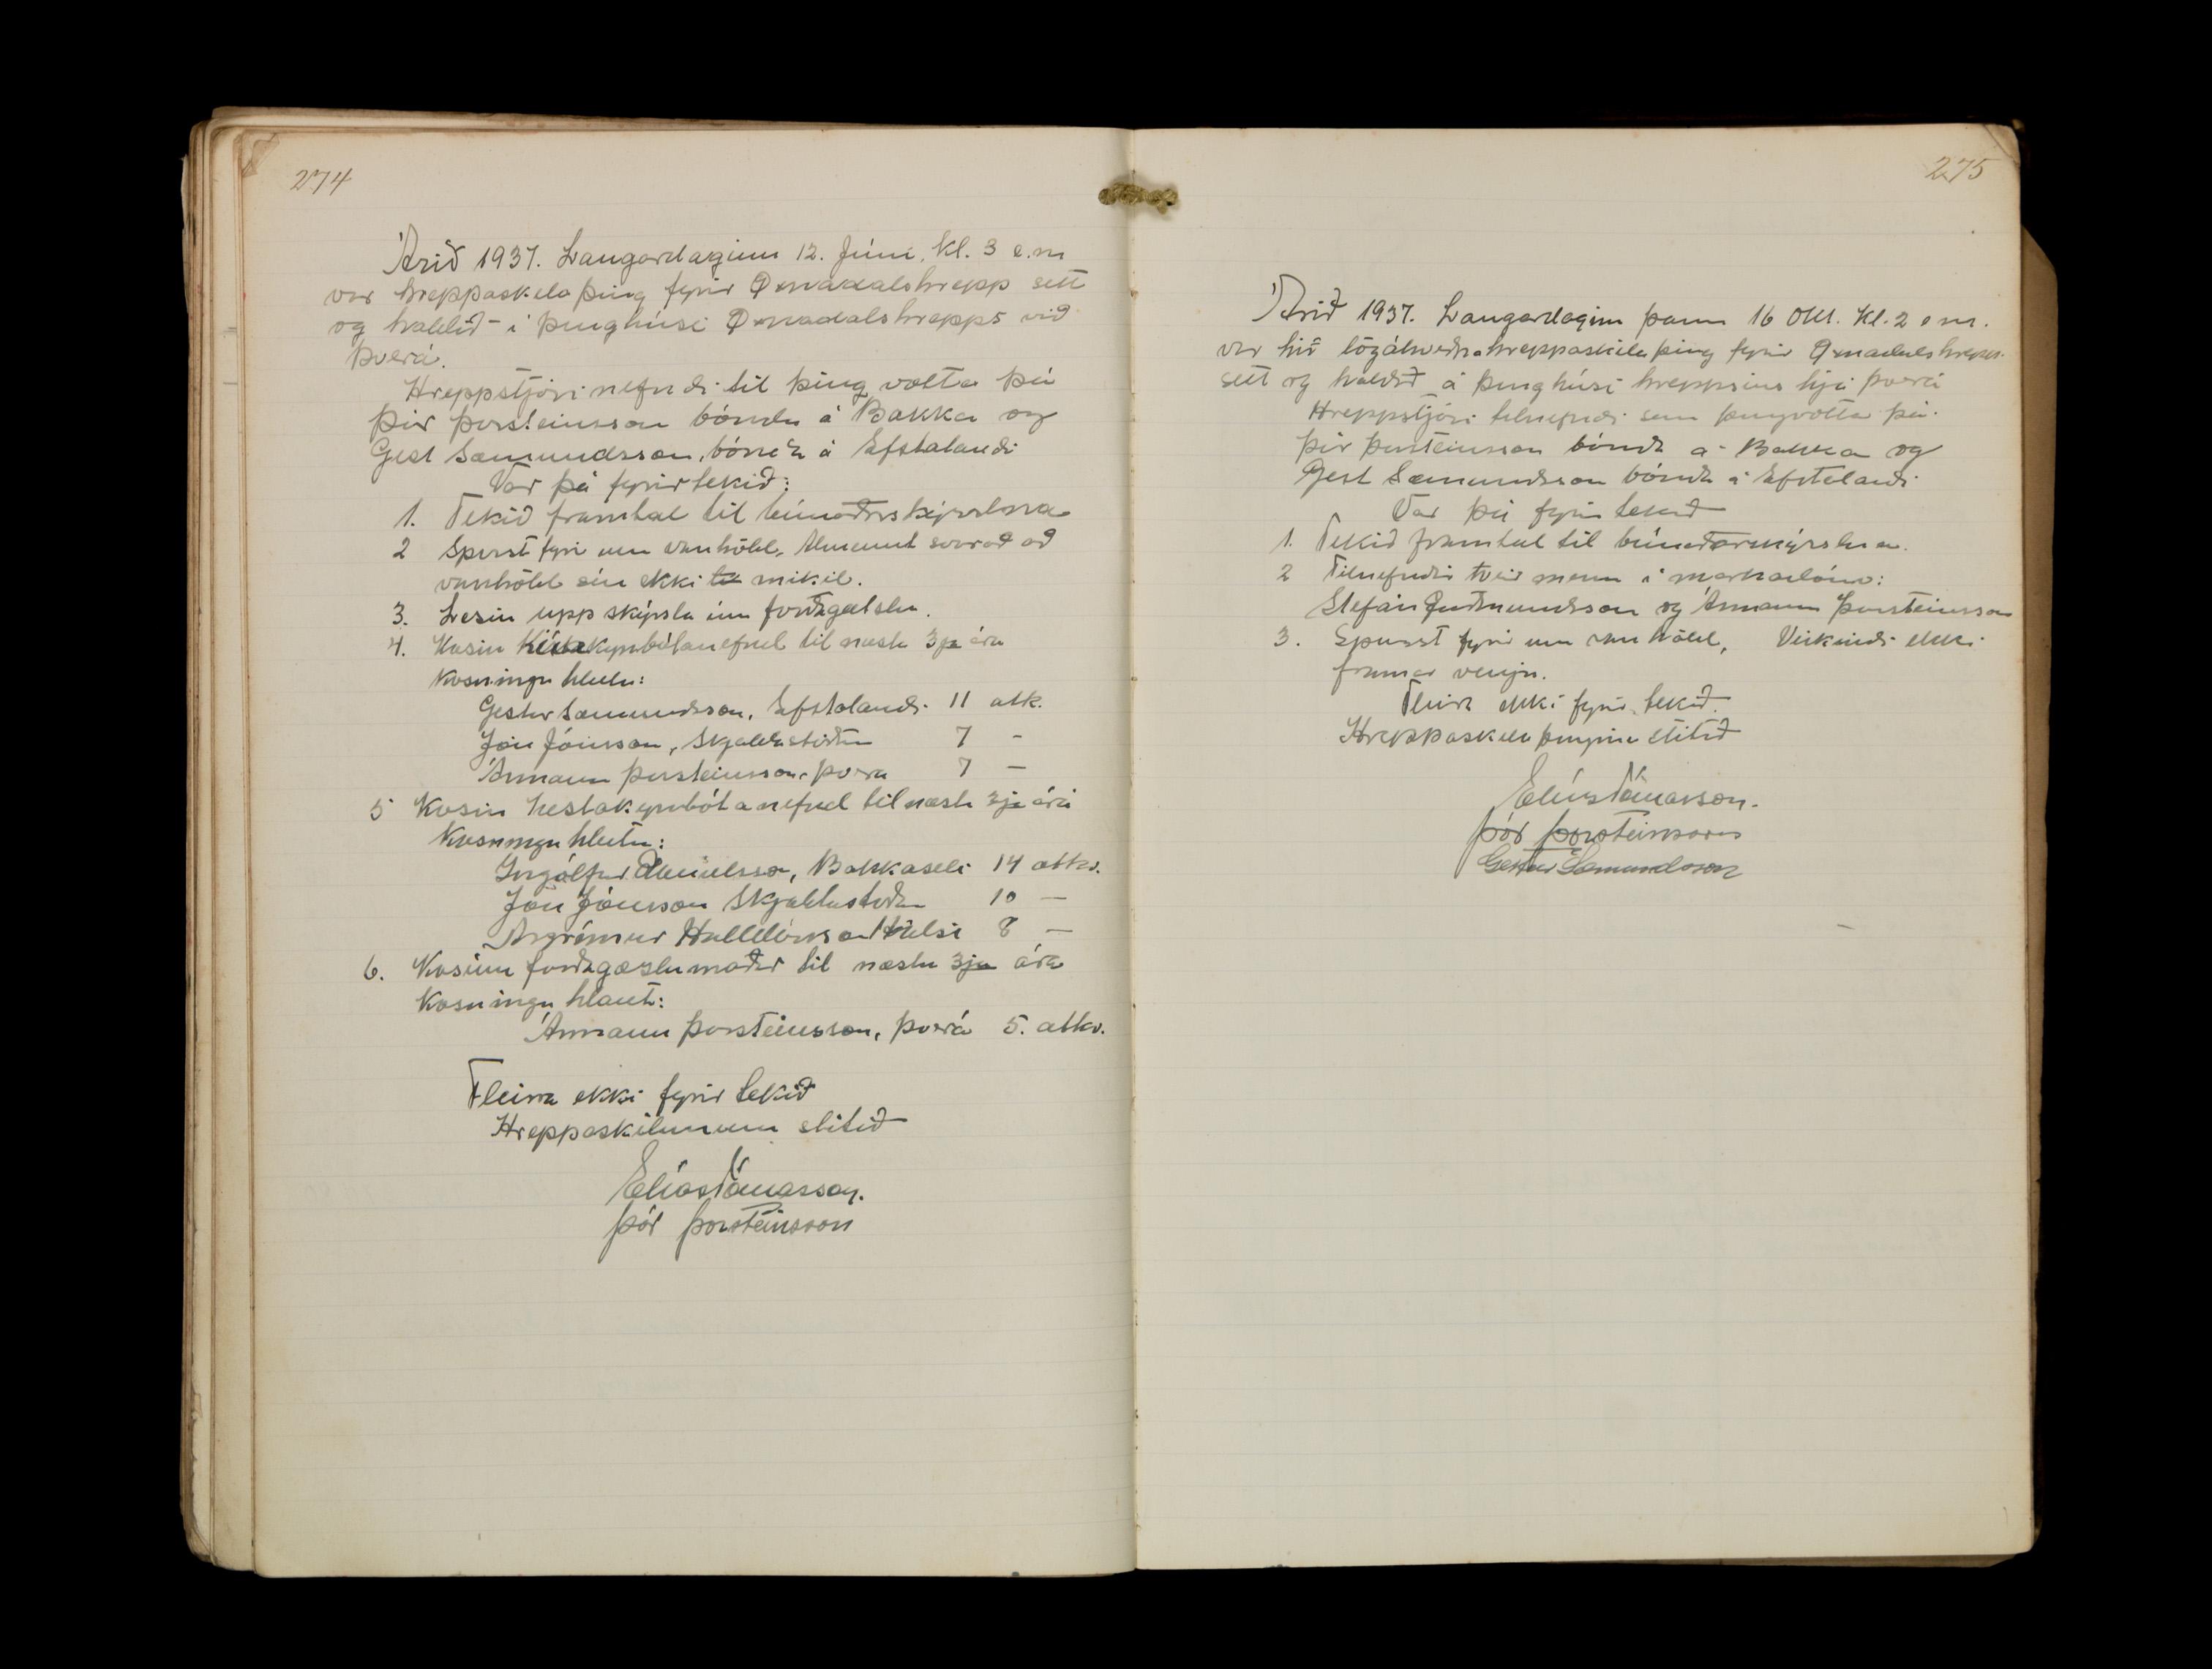 274
Árið 1937. Laugardaginn 12. Júní, kl. 3 e.m
var hreppaskilaþing fyrir Öxnadalshrepp sett
og haldið í þinghúsi Öxnadalshrepps við
Þverá.
Hreppstjóri nefndi til þingvotta þá
Þór Þorsteinsson bónda á Bakka og
Gest Sæmundsson, bónda á Efstalandi
Var þá fyrirtekið:
1. Tekið framtal til búnaðarskýrslna
2 Spurst fyri um vanhöld. Almennt svarað að
vanhöld séu ekki mikil.
3. Lesin upp skýrsla um forðagæslu.
4. Kosin kynbótanefnd til næstu 3ja ára
Kosningu hlutu:
Gestur Sæmundsson, Efstalandi 11 atk.
Jón Jónsson, Skjaldastöðum 7 -
Ármann Þorsteinsson, Þverá 7 -
5 Kosin hestakynbótanefnd til næstu 3ja ára
Kosningu hlutu:
Ingólfur Bakkaseli 14 atkv.
Jón Jónsson Skjaldastöðum 10 -
Halldórsson Hálsi 8 -
6. Kosinn forðagæslumaður til næstu 3ja ára
Kosningu hlaut:
Ármann Þorsteinsson, Þverá 5. atkv.
Fleira ekki fyrir tekið
Hreppaskilunum slitið
Elías Tómasson.
Þór Þorsteinsson
275
Árið 1937. Laugardaginn þann 16 Okt. Kl. 2 e m.
var hið lögákveðna hreppaskilaþing fyrir Öxnadalshrepp
sett og haldið á þinghúsi hreppsins hjá Þverá
Hreppstjóri tilnefndi sem þingvotta þá.
Þór Þorsteinsson bónda á Bakka og
Gest Sæmundsson bónda á Efstalandi
Var þá fyrir tekið
1. Tekið framtal til búnaðarskýrslna.
2 Tilnefndir tveir menn í markadóm:
Stefán Guðmundsson og Ármann Þorsteinsson
3. Spurst fyrir um vanhöld, Virtust ekki
framar venju.
Fleira ekki fyrir tekið.
Hreppaskila þinginu slitið
Elías Tómasson.
Þór Þorsteinsson
Gestur Sæmundsson